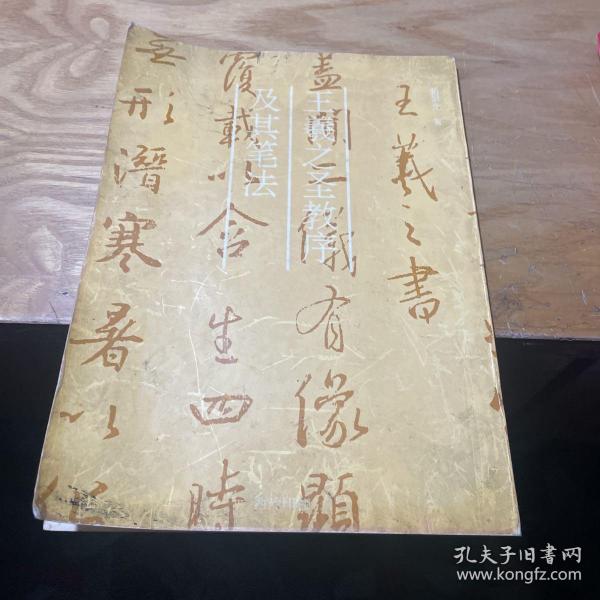 王羲之圣教序
及其笔法
王羲之書
盖聞二儀有像顯
覆載以含生四時
无形潛寒暑以化
孔夫子旧書网
www.kongfz.com